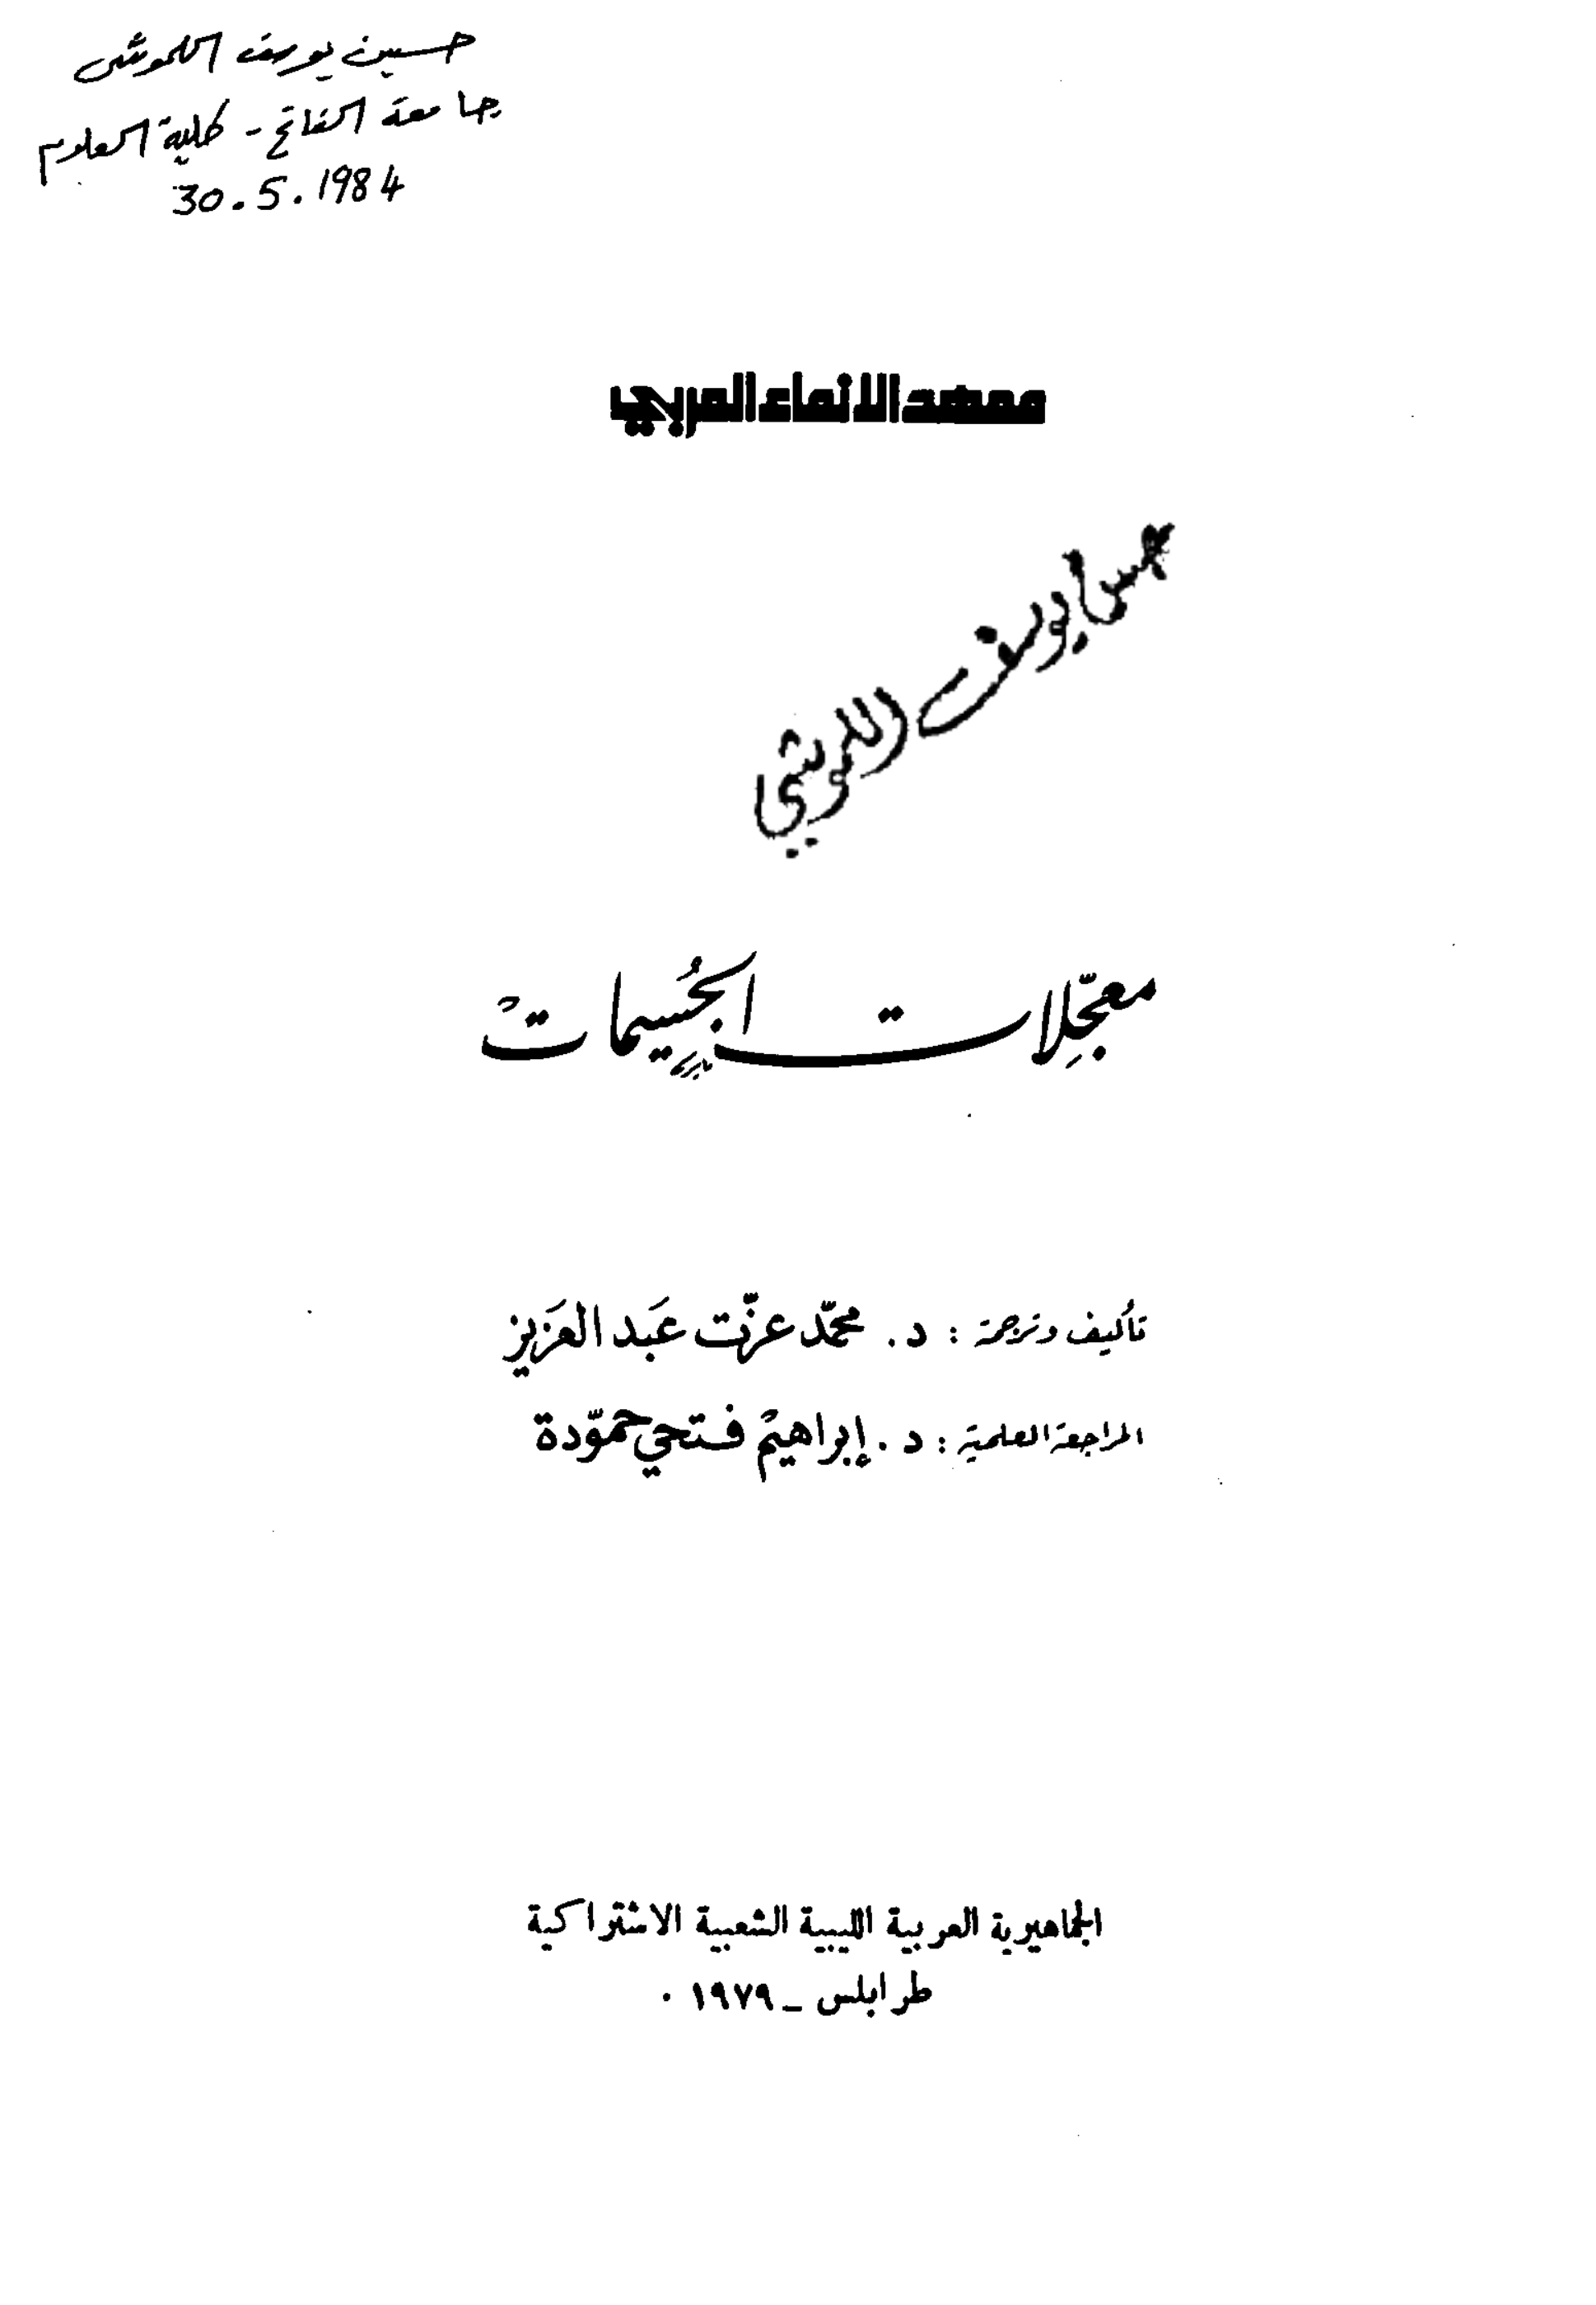 حسين يوسف اللموشى
جامعة الفاتح - كلية العلوم
30.5.1984
معهد الانماء العربي
حسين يوسف اللموشي
معجّلات الجُسيمات
تأليف وترجمة : د. محمّد عزّت عَبد العَزيز
المراجعة العلمية : د. إبراهيم فتحي حمّودة
الجماهيرية العربية الليبية الشعبية الاشتراكية
طرابلس ـ ١٩٧٩ .